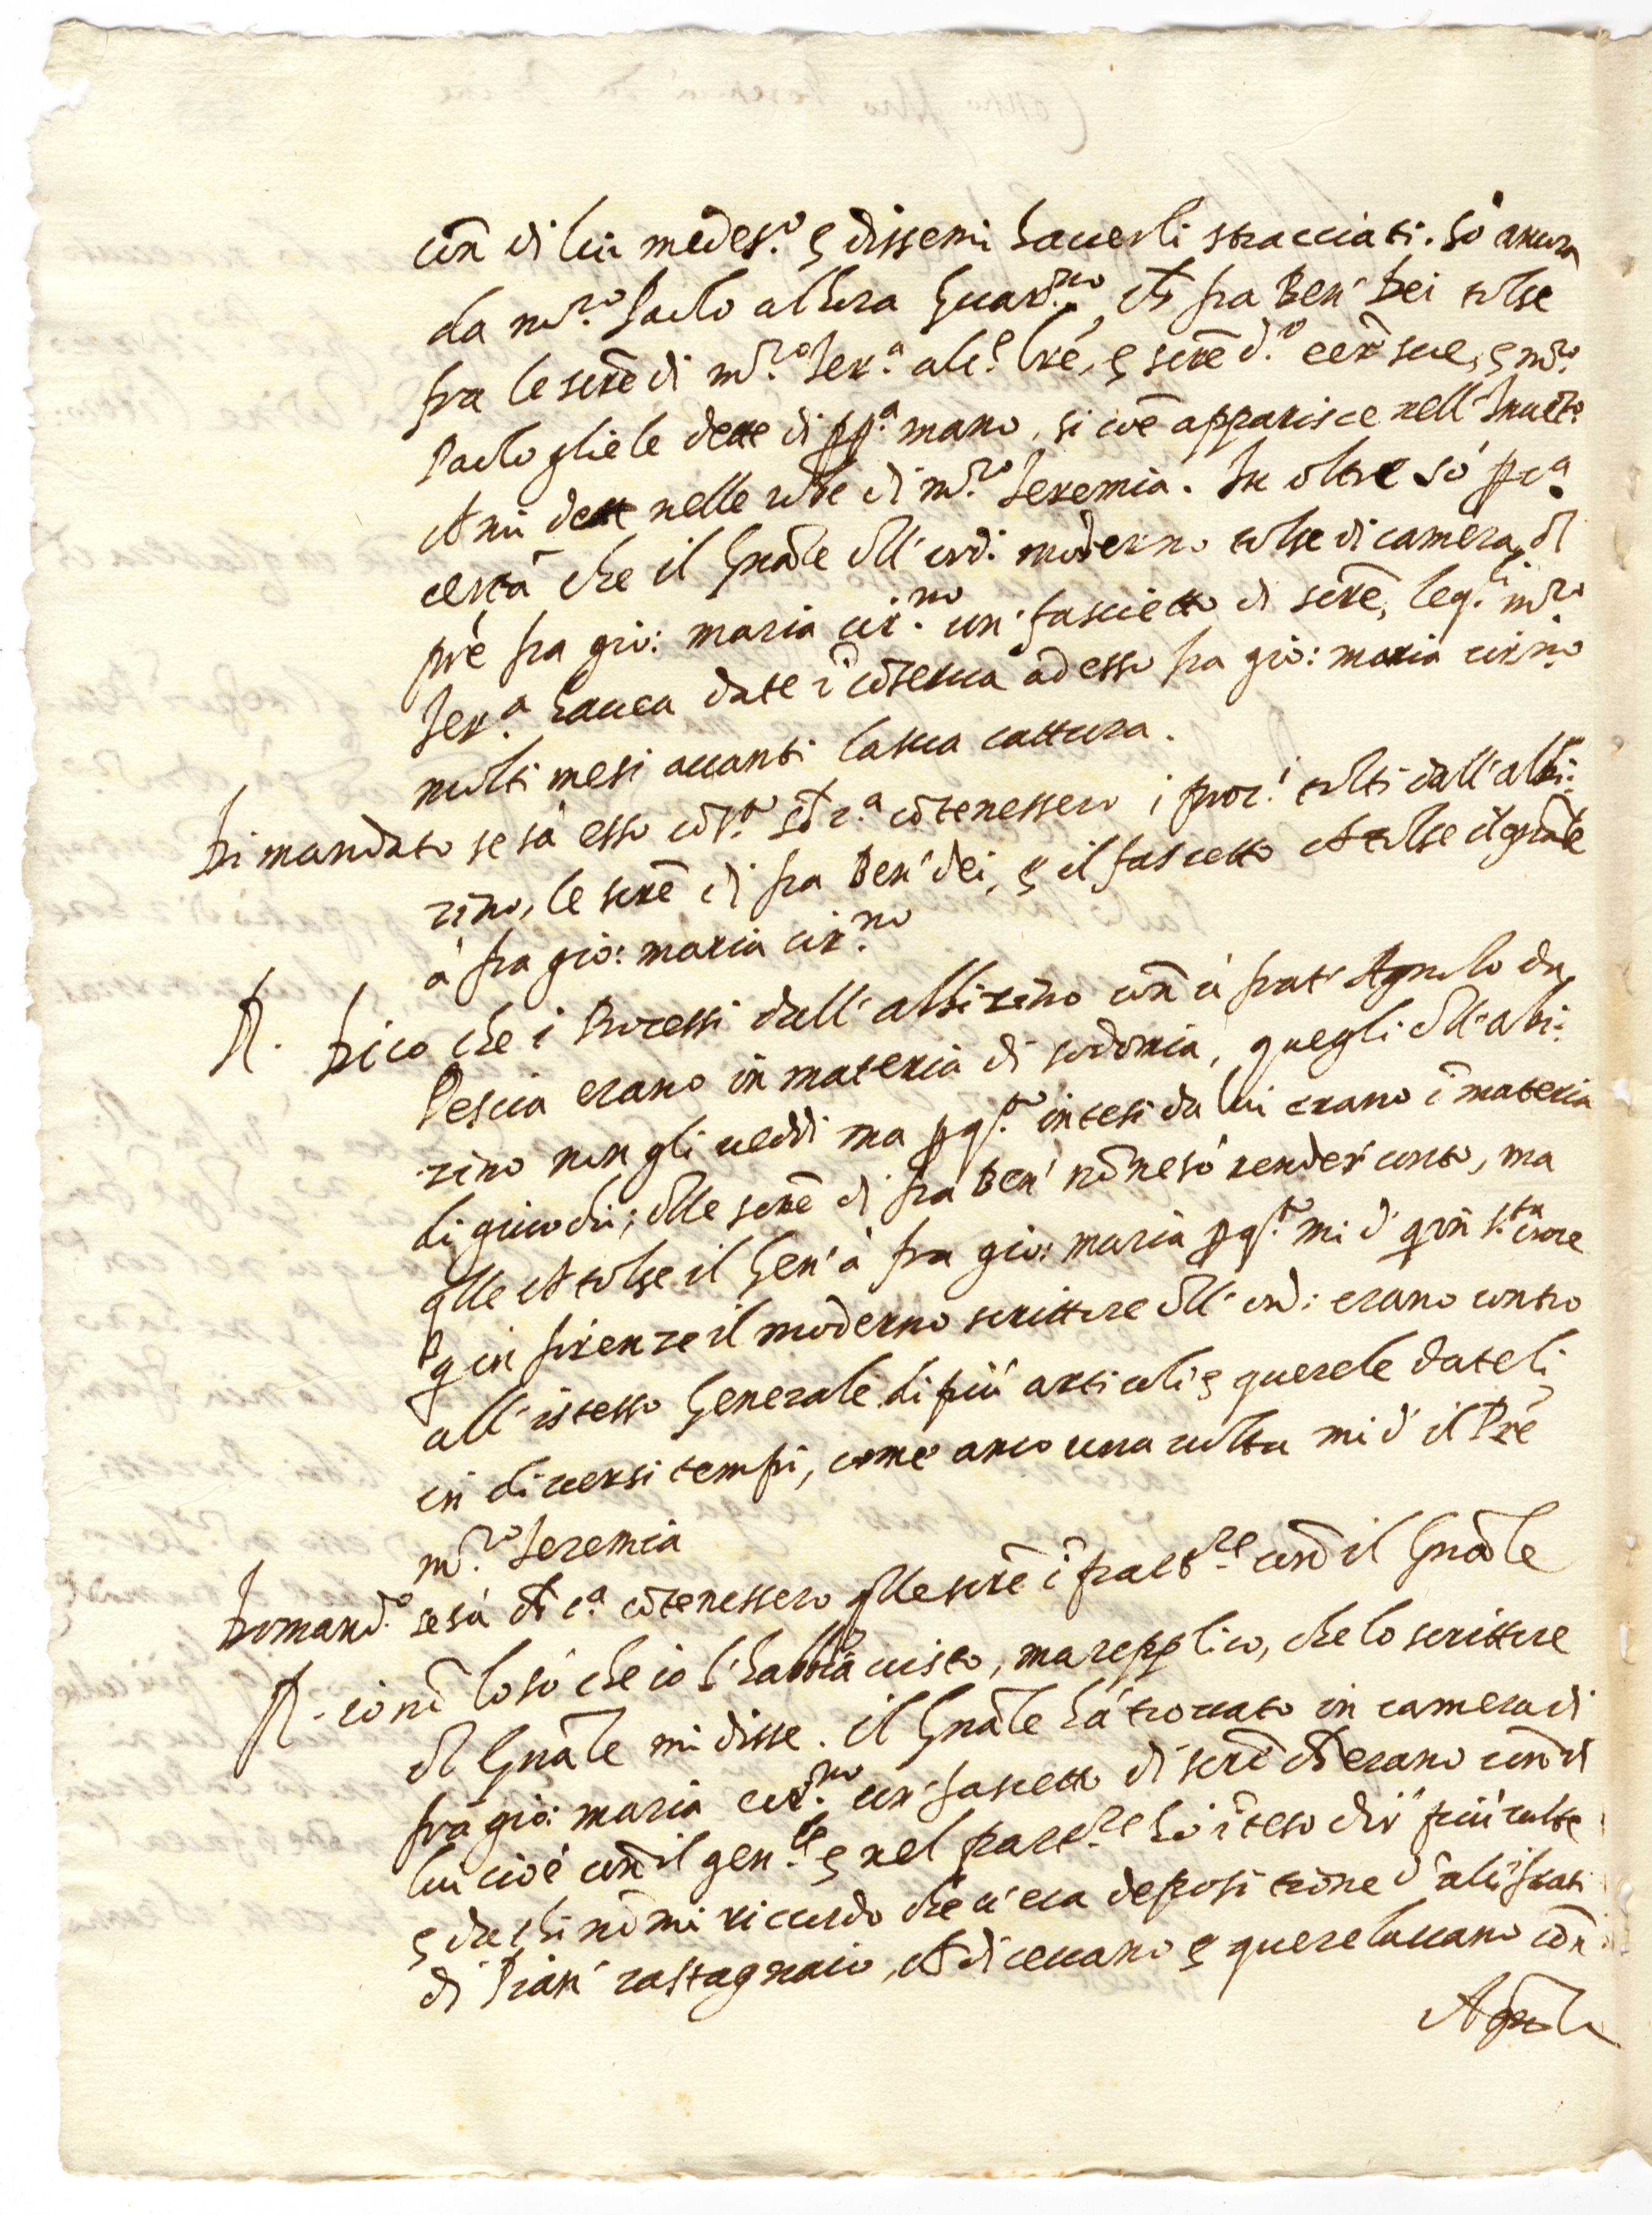 con̄ di lui medes.º e dissemi hauerli stracciati. Sò ancora
da m.ro Paolo allhora Guard.no, ch̄ fra Ben' Dei tolse
fra le scrē di m.ro Jer.a alc.e lrē, e scrē d.º eer̄ sue, e m.ro
Paolo gliele dette di pp.a mano, si coē apparisce nell'
ch̄ mi dett nelle robe di m.ro Jeremia. In oltre sò p c.a
certa che il Gnāle dll' ord: moderno tolse di camera dl
prē fra gio: maria cir.no un' fascietto di scrē, leq.li m.ro
Jer.a hauea date ī cōserua ad esso fra gio: maria cirino
molti mesi auanti la sua cattura.
Dimandato se sà esso cōs.to ch̄ c.a cōtenessero i proc.i tolti dall' albi:
zino, le scrē di fra Ben' dei, e il fascetto ch̄ tolse il gnāle
à fra gio: maria cir.no
R. Dico che i Processi dall' albizino con̄ à frat' Agnolo da
Pescia erano in materia di sodomia, quegli dll' albi:
zino non gli ueddi ma p q.to intesi da lui erano ī materia
di giuochi; dlle scrē di fra Ben' nō ne sò render conto, ma
qlle ch̄ tolse il Gen' à fra gio: maria p q.to mi d'
q in firenze il moderno scrittore dll' ord: erano contro
all' istesso Generale di più articoli e querele dateli
in diuersi tempi, come anco una uolta mi d' il Prē
m.ro Jeremia
Domand.º se sà ch̄ c.a cōtenessero qlle scrē ī part.re cond il Gnāle
R. io nō lo sò che io l'habbia uisto, ma repplico, che lo scrittore
dl Gnāle mi disse. il Gnāle hà trouato in camera di
fra gio: maria cir.no un' fascetto di scrē ch̄ erano con̄ di
lui cioè con̄ il gen.le e nel part.re hò īteso dir' più uolte
e da chi nō mi ricordo che u'era depositione d' alc.i frati
di Pian' castagnaio, ch̄ diceuano e querelauano cōn
Agnolo